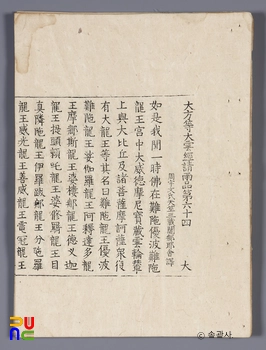 大方等大雲經請雨品第六十四 大
如是我聞一時佛在難陁優波難陁
龍王宮中大威德摩尼寶藏雲輪輦
上與大比丘及諸菩薩摩訶薩衆復
有大龍王等其名曰難陁龍王優波
難陁龍王娑伽羅龍王阿耨達多龍
王摩那斯龍王婆樓那龍王德叉迦
龍王提頭頼吒龍王婆修鷄龍王目
真隣陁龍王伊羅跋那龍王分陁羅
龍王威光龍王善威龍王電冠龍王
© 송광사